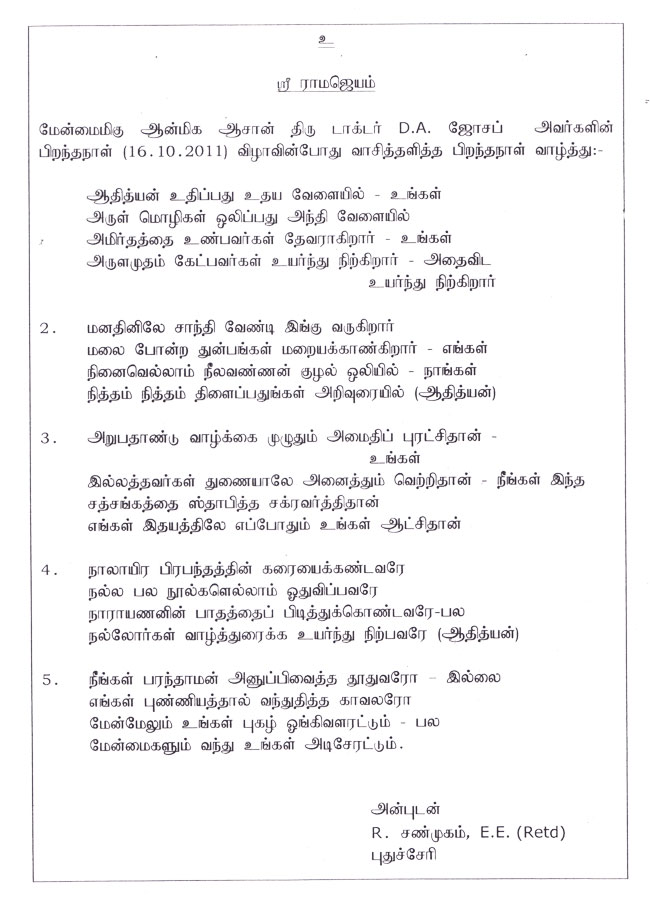 உ
ஸ்ரீ ராமஜெயம்
மேன்மைமிகு ஆன்மிக ஆசான் திரு டாக்டர் D.A. ஜோசப் அவர்களின்
பிறந்தநாள் (16.10.2011) விழாவின்போது வாசித்தளித்த பிறந்தநாள் வாழ்த்து:-
ஆதித்யன் உதிப்பது உதய வேளையில் - உங்கள்
அருள் மொழிகள் ஒலிப்பது அந்தி வேளையில்
அமிர்தத்தை உண்பவர்கள் தேவராகிறார் - உங்கள்
அருளமுதம் கேட்பவர்கள் உயர்ந்து நிற்கிறார் - அதைவிட
உயர்ந்து நிற்கிறார்
2. மனதினிலே சாந்தி வேண்டி இங்கு வருகிறார்
மலை போன்ற துன்பங்கள் மறையக்காண்கிறார் - எங்கள்
நினைவெல்லாம் நீலவண்ணன் குழல் ஒலியில் - நாங்கள்
நித்தம் நித்தம் திளைப்பதுங்கள் அறிவுரையில் (ஆதித்யன்)
3. அறுபதாண்டு வாழ்க்கை முழுதும் அமைதிப் புரட்சிதான் -
உங்கள்
இல்லத்தவர்கள் துணையாலே அனைத்தும் வெற்றிதான் - நீங்கள் இந்த
சத்சங்கத்தை ஸ்தாபித்த சக்ரவர்த்திதான்
எங்கள் இதயத்திலே எப்போதும் உங்கள் ஆட்சிதான்
4. நாலாயிர பிரபந்தத்தின் கரையைக்கண்டவரே
நல்ல பல நூல்களெல்லாம் ஓதுவிப்பவரே
நாராயணனின் பாதத்தைப் பிடித்துக்கொண்டவரே-பல
நல்லோர்கள் வாழ்த்துரைக்க உயர்ந்து நிற்பவரே (ஆதித்யன்)
5. நீங்கள் பரந்தாமன் அனுப்பிவைத்த தூதுவரோ - இல்லை
எங்கள் புண்ணியத்தால் வந்துதித்த காவலரோ
மேன்மேலும் உங்கள் புகழ் ஓங்கிவளரட்டும் - பல
மேன்மைகளும் வந்து உங்கள் அடிசேரட்டும்.
அன்புடன்
R. சண்முகம், E.E. (Retd)
புதுச்சேரி